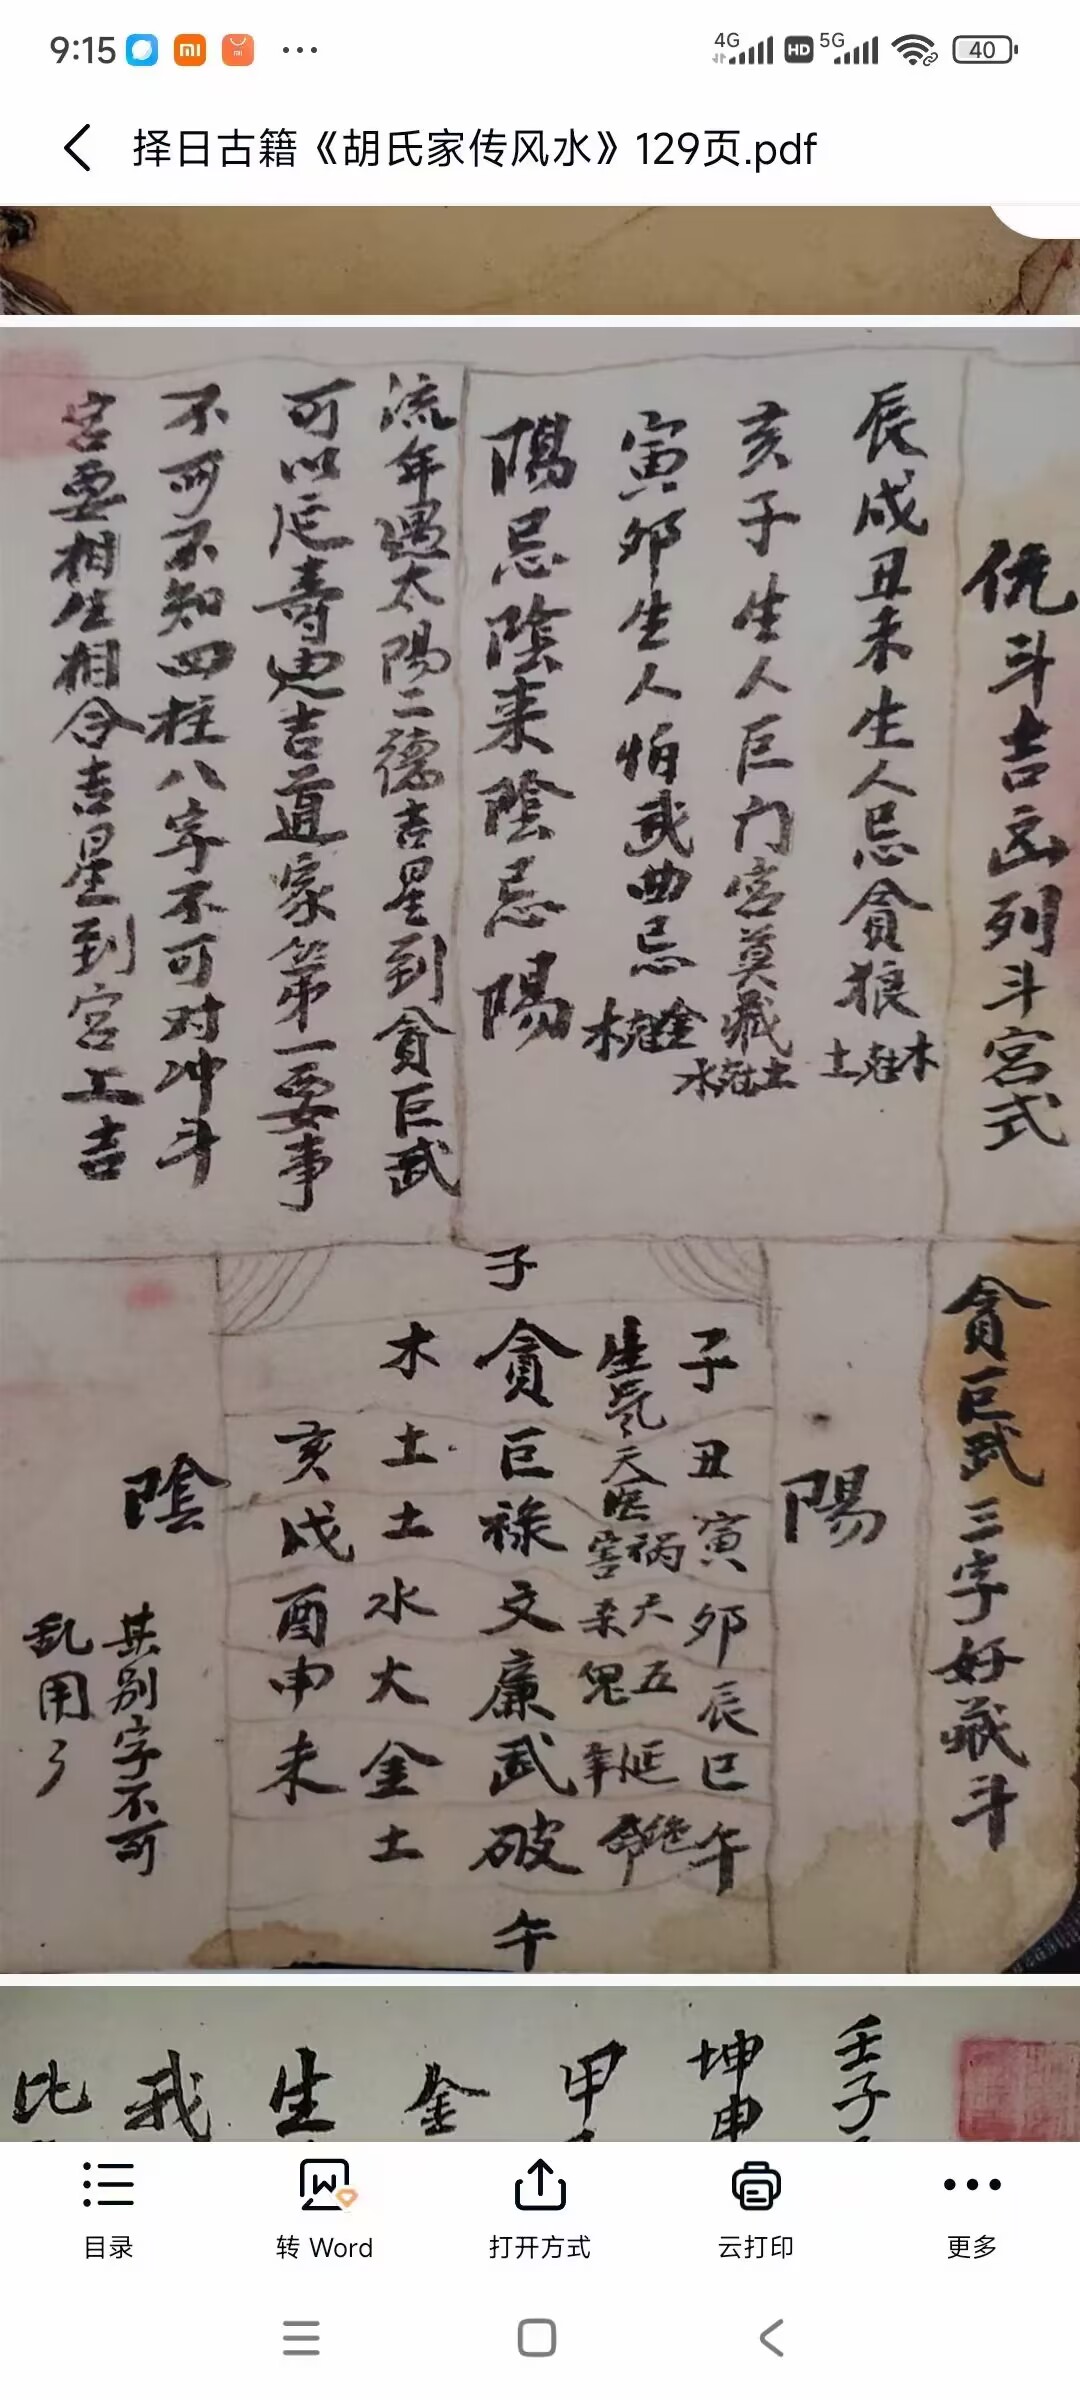 9:15
4G HD 5G 40
择日古籍《胡氏家传风水》129页.pdf
斗吉凶列斗宫式
辰戌丑未生人忌贪狼
木克土
亥子生人巨门宫莫藏
土克水
寅卯生人怕武曲忌
金克木
陽忌陰来陰忌陽
流年遇太陽二德吉星到貪巨武
可以延壽迪吉道家第一要事
不可不知四柱八字不可对冲斗
宫要相生相合吉星到宫上吉
貪巨武三字好藏斗
陽
子
子丑寅卯辰巳午
生气 天医 祸害 天杀 五鬼 延年 绝命
貪巨祿文廉武破
木土土水火金土
亥戌酉申未
午
陰
其别字不可
乱用了
壬子
坤申
甲
金
生
我
比
目录
转 Word
打开方式
云打印
更多